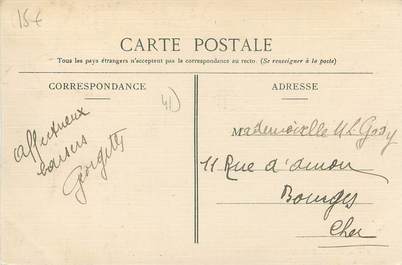 15€
CARTE POSTALE
Tous les pays étrangers n'acceptent pas la correspondance au recto. (Se renseigner à la poste)
CORRESPONDANCE
ADRESSE
41)
Affectueux
baisers
Georgette
Mademoiselle M L Gody
11 Rue d'
Bourges
Cher